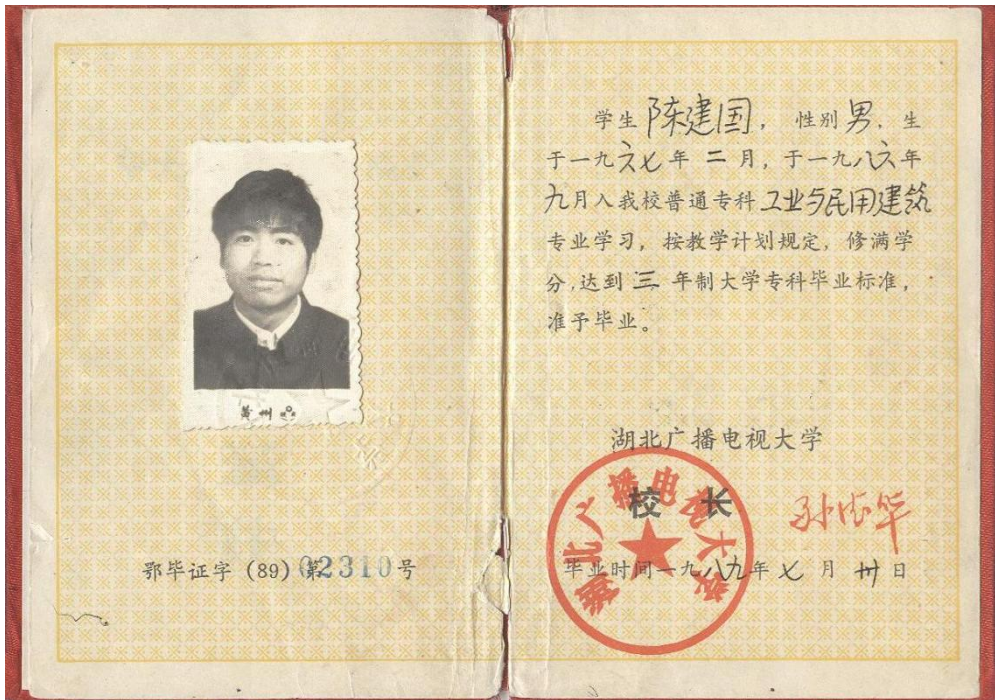 黄州
鄂毕证字 (89) 第02310号
学生 陈建国, 性别 男, 生
于一九六七年 二 月, 于一九八六年
九月入我校普通专科 工业与民用建筑
专业学习, 按教学计划规定, 修满学
分,达到 三 年制大学专科毕业标准,
准予毕业。
湖北广播电视大学
校 长
湖北广播电视大学
毕业时间一九八九年 七 月 卅 日